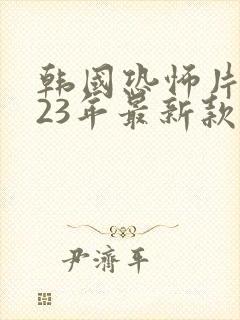 韩国恐怖片
23年最新款
尹濟平